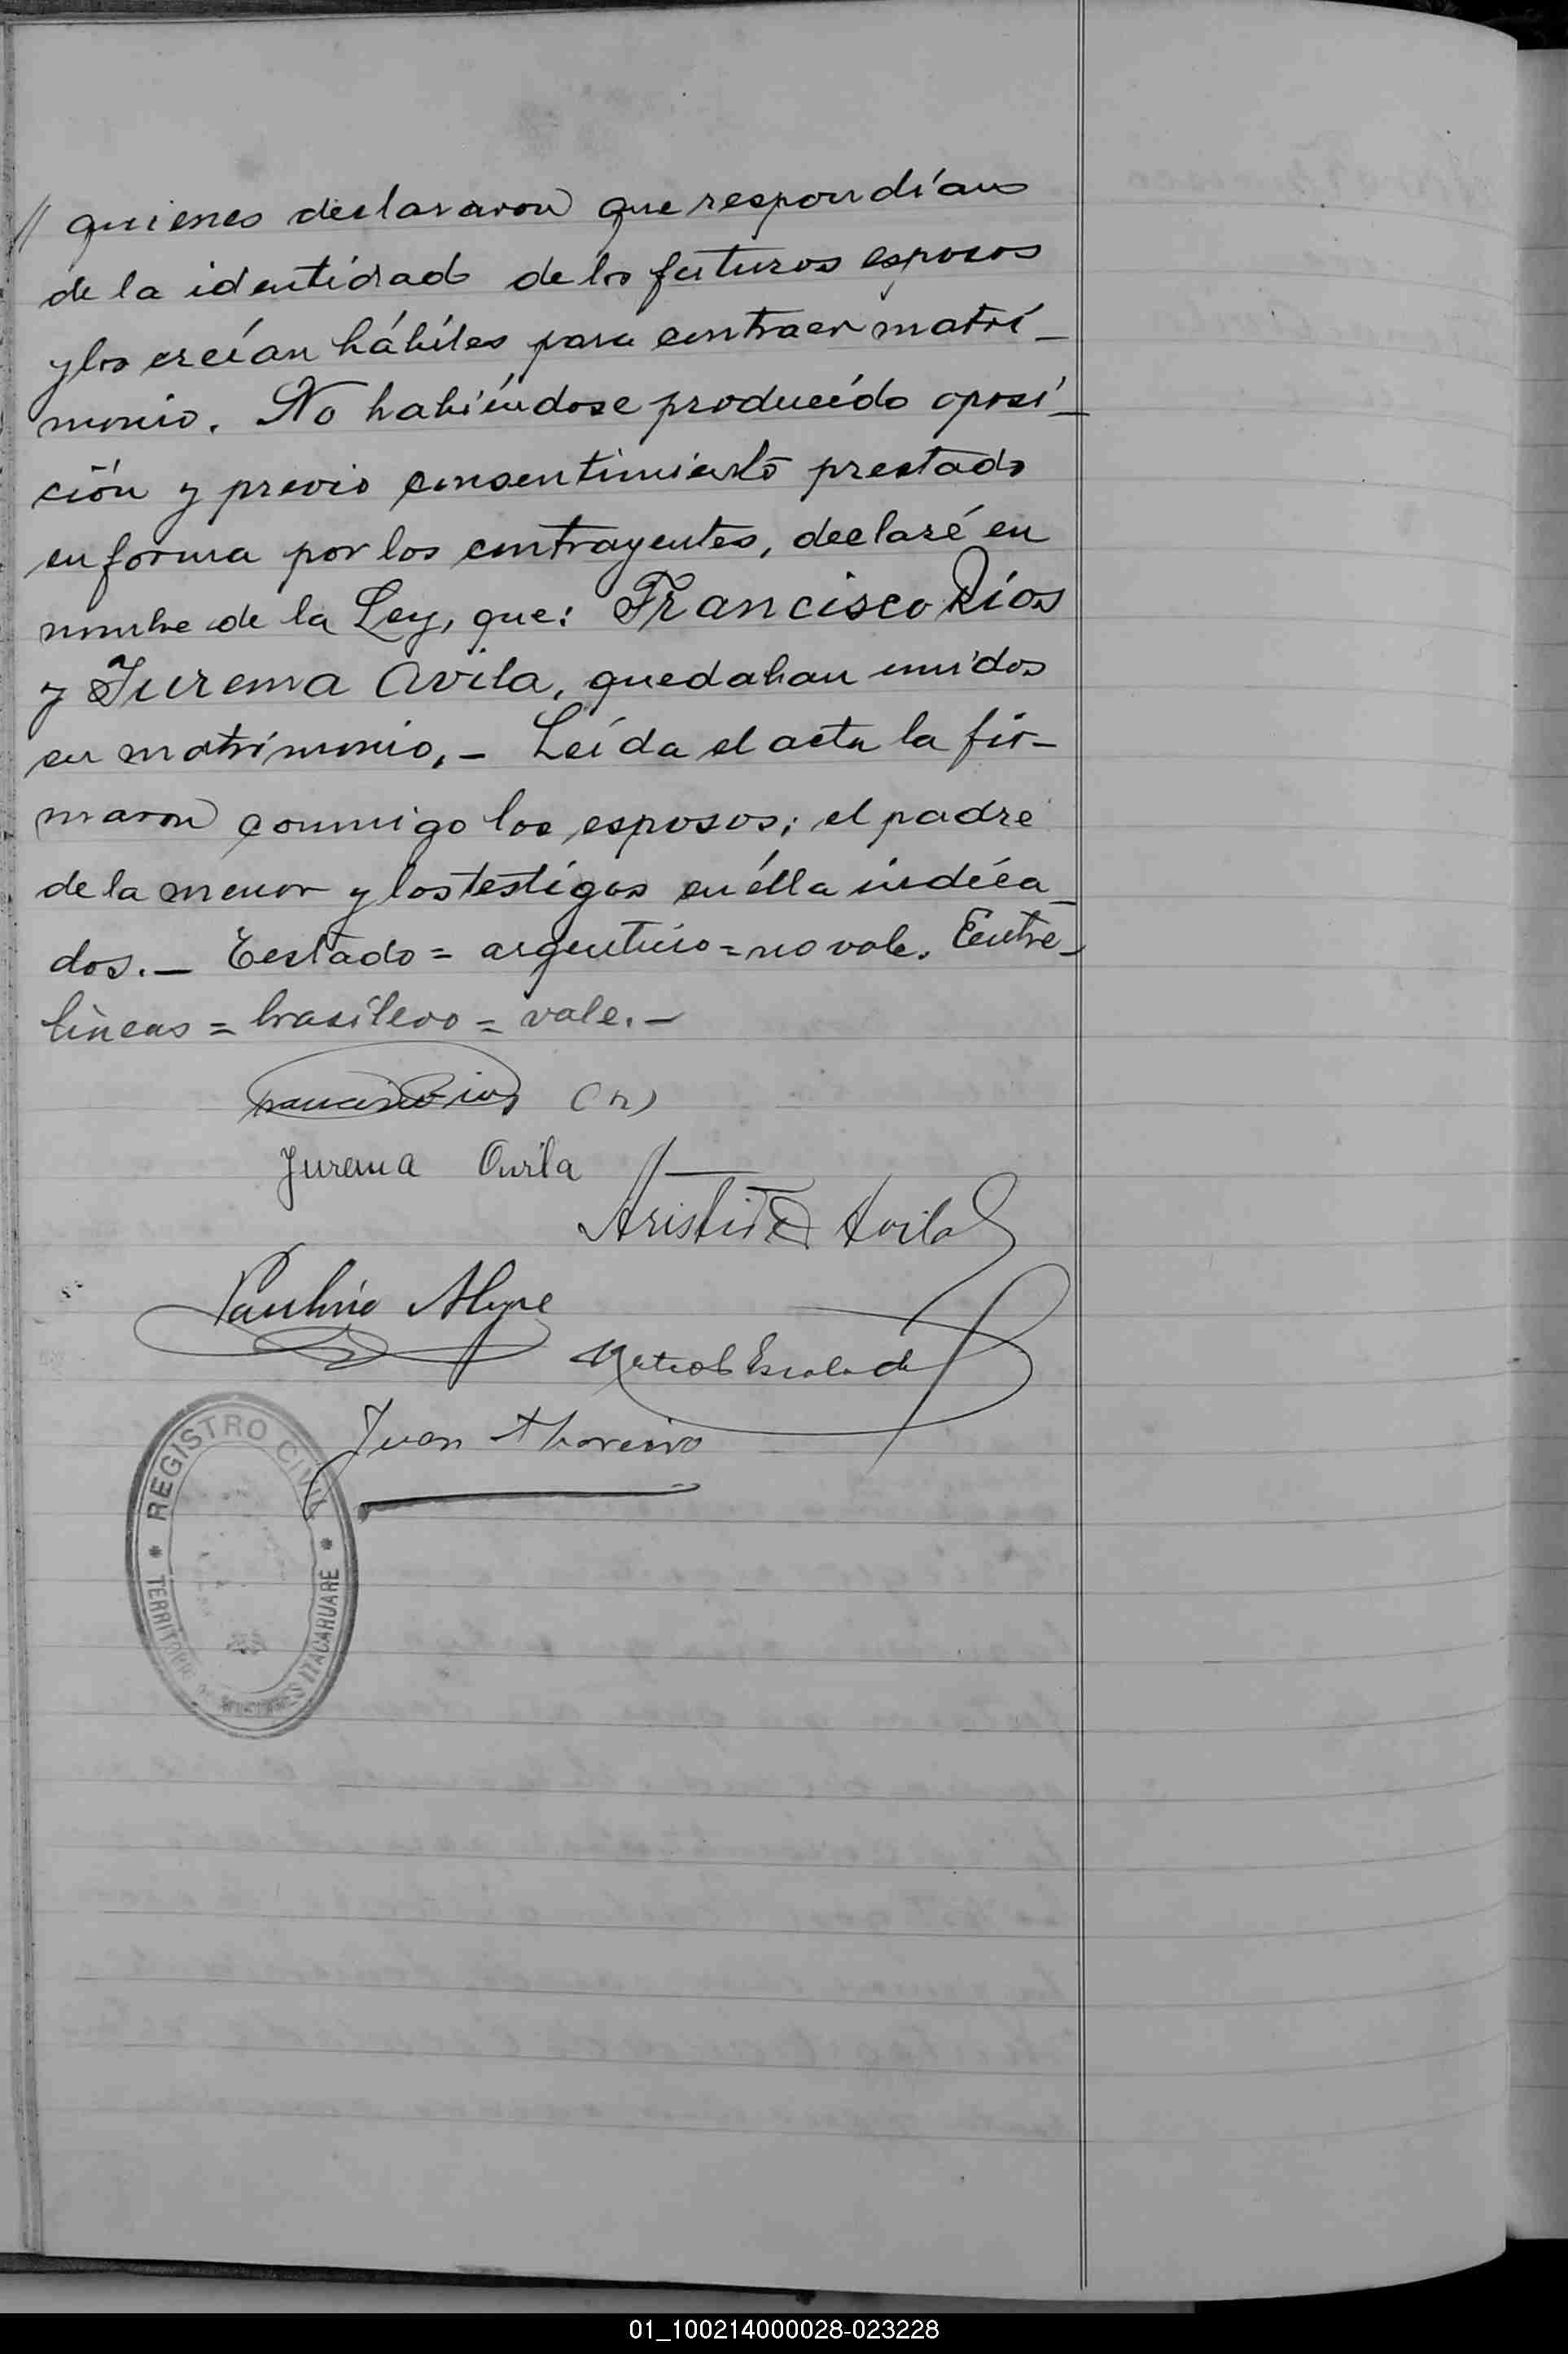 // quienes declararon que respondían
de la identidad de los futuros esposos
y los creían hábiles para contraer matri-
monio. No habiéndose producido oposi-
ción y previo consentimiento prestado
en forma por los contrayentes, declaré en
nombre de la Ley, que: Francisco Ríos
y Jurema Avila, quedaban unidos
en matrimonio.- Leída el acta la fir-
maron conmigo los esposos; el padre
de la menor y los testigos en élla indica-
dos.- Testado = argentino = no vale. Entre-
líneas = brasilero = vale.-
Francisco Rios (h)
Jurema Avila
Aristide Avila
Paulino
Juan
REGISTRO CIVIL
TERRITORIO DE MISIONES ITACARUARE
01_100214000028-023228